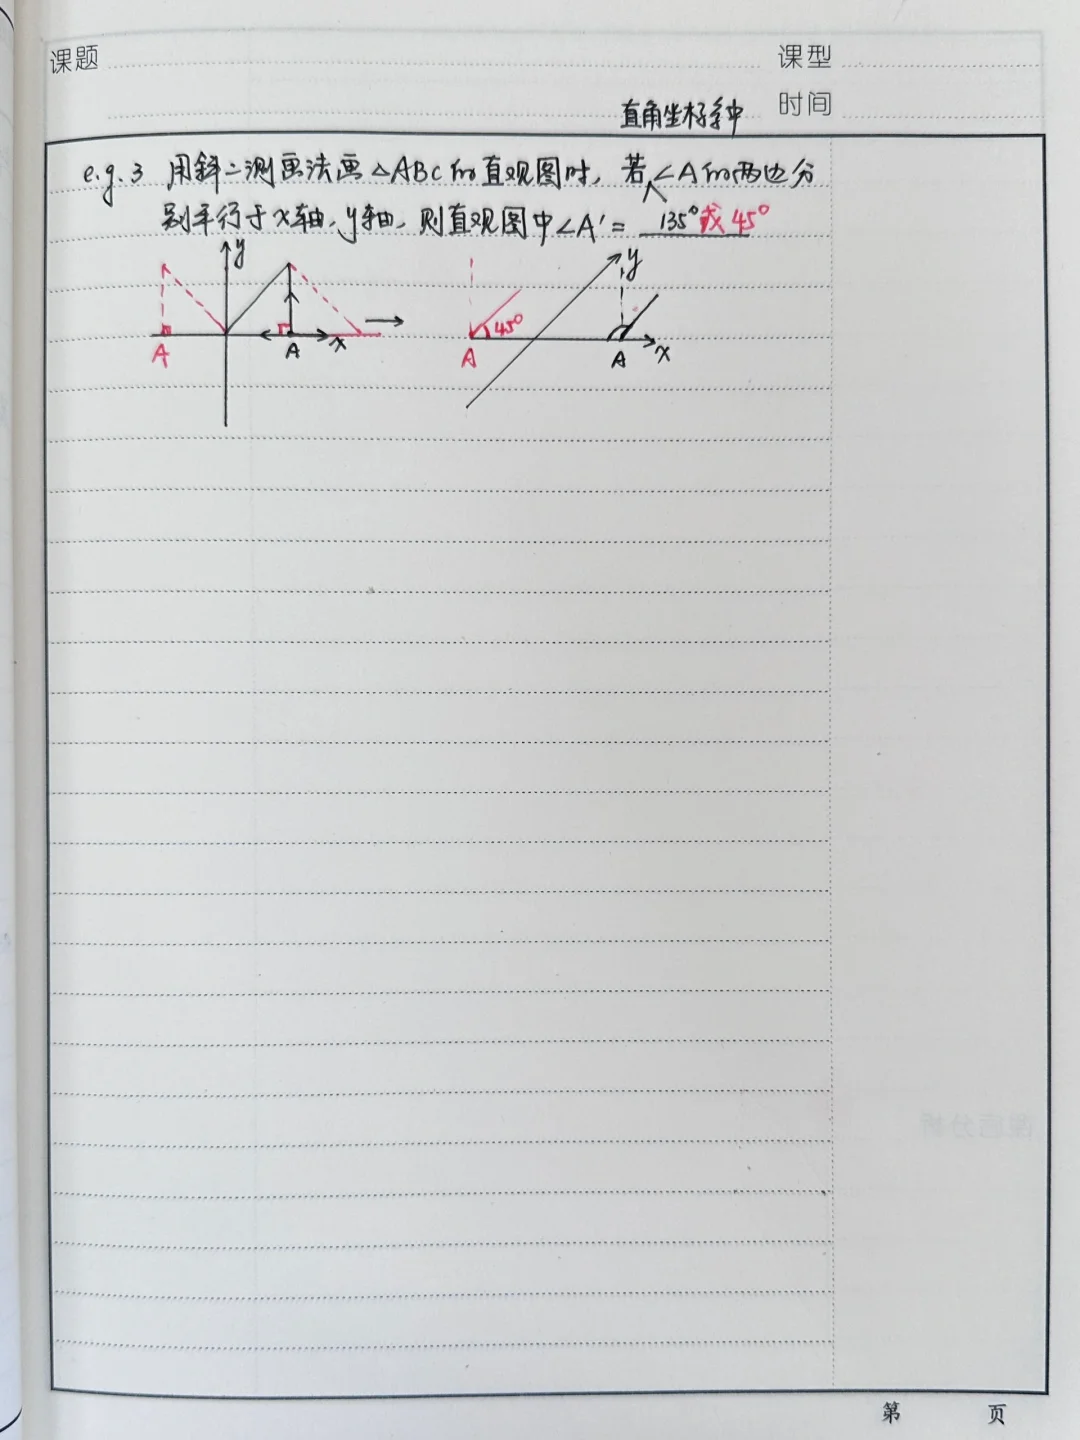 课题
课型
时间
直角坐标系中
e.g.3 用斜二测画法画△ABC的直观图时，若∧∠A的两边分
别平行于x轴、y轴，则直观图中∠A′= 135°或45°
y
y
45°
A
A
x
A
A
x
第 页